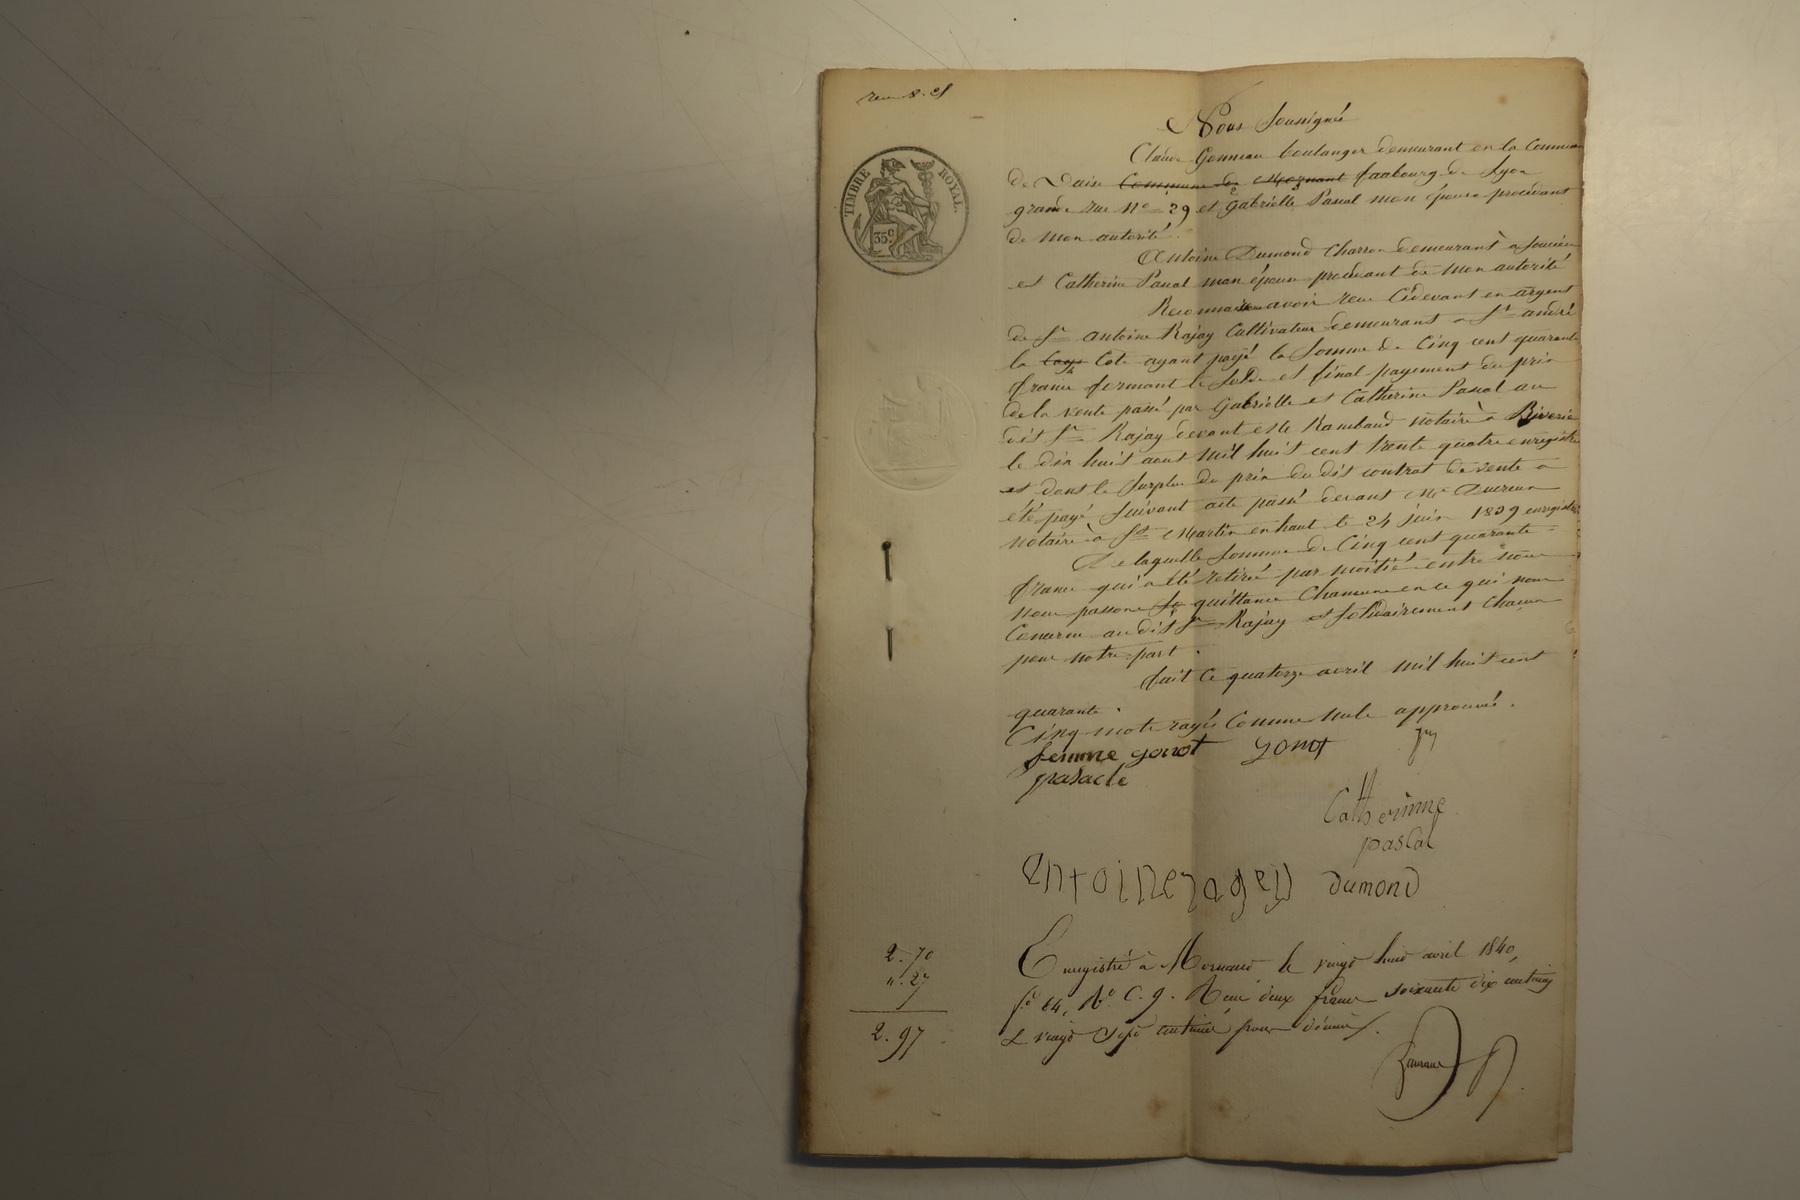 TIMBRE ROYAL.
35c.
Nous Soussignés
Claude Gonneau boulanger demeurant en la Commune
de Vaise Commune de Mornant faubourg de Lyon
grande rue No 29 et Gabrielle Pascal mon épouse procédant
de mon autorité.
Antoine Dumond Charron demeurant à
et Catherine Pascal mon épouse procédant de mon autorité
avoir reçu Cidevant en argent
de Sr antoine Rajay Cultivateur demeurant a St andré
la Cote ayant payé la Somme de Cinq cent quarante
francs formant le Solde et final payement du prix
de la vente passé par Gabrielle et Catherine Pascal au
dit Sr Rajay devant Me Rambaud notaire à Riverie
le dix huit aout mil huit cent trente quatre enregistré
et dont le Surplus du prix du dit contrat de vente a
été payé Suivant acte passé devant Me Ducreux
notaire à St Martin en haut le 24 juin 1839 enregistré
De laquelle Somme de Cinq cent quarante
francs qui a été retiré par moitié entre nous
nous passons quittance Chacune en ce qui nous
Concerne au dit Sr Rajay et Solidairement Chacun
pour notre part.
fait Ce quatorze avril mil huit cent
quarante.
Cinq mots rayés Comme nuls approuvés.
femme gonot gonot
pasacle
Catherinne
pascal
antoineragey dumond
2. 70
". 27
2. 97
Enregistré à Mornand le vingt huit avril 1840,
fo 84, Ro C. 9. Reçu deux francs soixante dix centimes
& vingt Sept centimes pour décime.